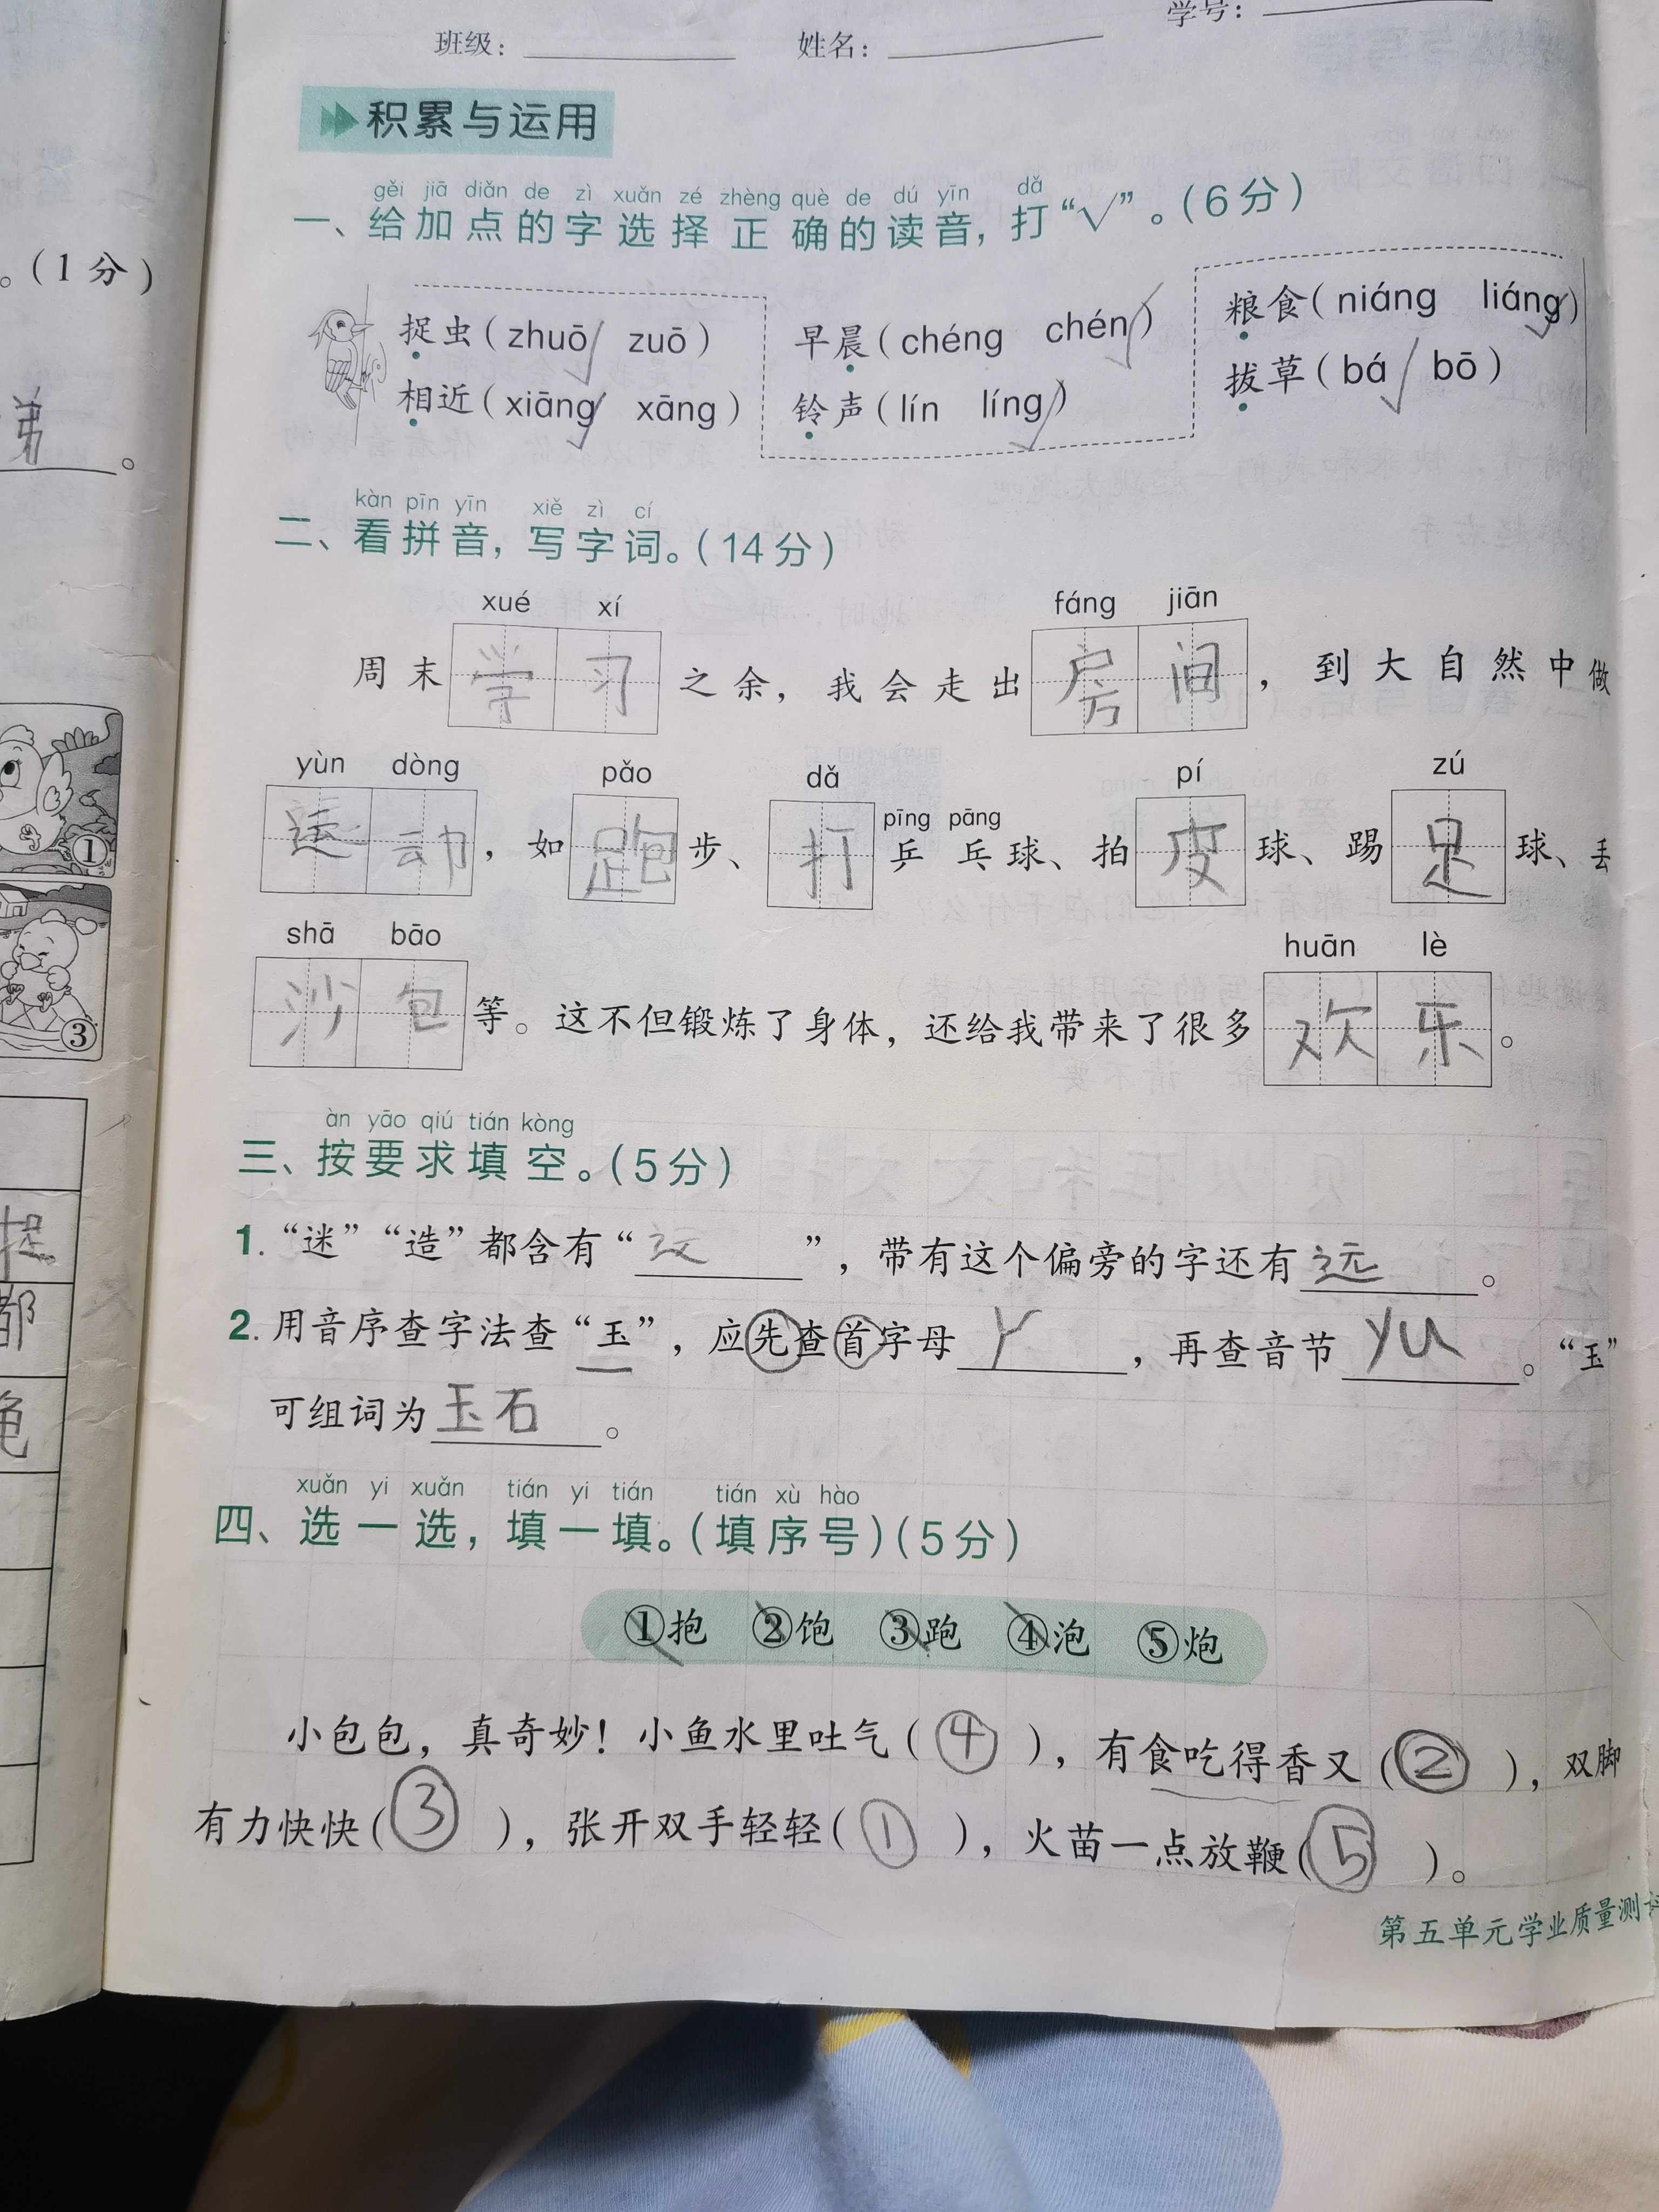 学号：
班级：　姓名：
积累与运用
gěi jiā diǎn de zì xuǎn zé zhèng què de dú yīn dǎ
一、给加点的字选择正确的读音，打“√”。（6分）
捉虫（zhuō√ zuō）　早晨（chéng chén√）　粮食（niáng liáng√）
相近（xiāng√ xāng）　铃声（lín líng√）　拔草（bá√ bō）
kàn pīn yīn xiě zì cí
二、看拼音，写字词。（14分）
xué xí　fáng jiān
周末学习之余，我会走出房间，到大自然中做
yùn dòng　pǎo　dǎ　pīng pāng　pí　zú
运动，如跑步、打乒乓球、拍皮球、踢足球、丢
shā bāo　huān lè
沙包等。这不但锻炼了身体，还给我带来了很多欢乐。
àn yāo qiú tián kòng
三、按要求填空。（5分）
1.“迷”“造”都含有“辶”，带有这个偏旁的字还有远。
2.用音序查字法查“玉”，应先查首字母Y，再查音节yu。“玉”
可组词为玉石。
xuǎn yi xuǎn tián yi tián tián xù hào
四、选一选，填一填。（填序号）（5分）
①抱 ②饱 ③跑 ④泡 ⑤炮
小包包，真奇妙！小鱼水里吐气（④），有食吃得香又（②），双脚
有力快快（③），张开双手轻轻（①），火苗一点放鞭（⑤）。
第五单元学业质量测
。（1分）
弟。
①
③
捉
都